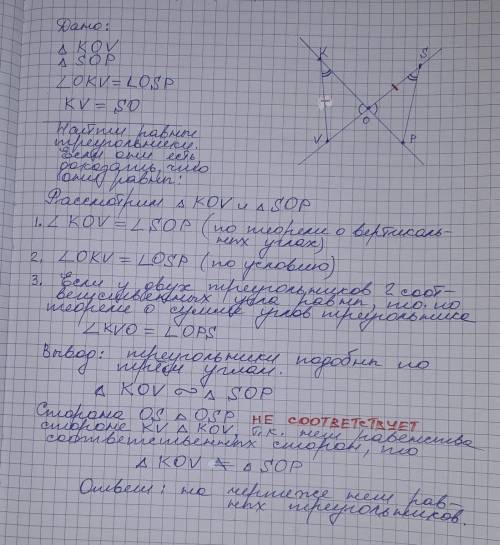 Дано:
△ KOV
△ SOP
∠OKV = ∠OSP
KV = SO
Найти равные
треугольники.
Если они есть
доказать, что
они равны!
K
S
O
V
P
Рассмотрим △ KOV и △ SOP
1. ∠ KOV = ∠ SOP (по теореме о вертикаль-
ных углах)
2. ∠OKV = ∠OSP (по условию)
3. Если у двух треугольников 2 соот-
ветственных угла равны, то по
теореме о сумме углов треугольника
∠KVO = ∠OPS
Вывод: треугольники подобны по
трем углам.
△ KOV ∾ △ SOP
Сторона OS △ OSP НЕ СООТВЕТСТВУЕТ
стороне KV △ KOV, т.к. нет равенства
соответственных сторон, то
△ KOV ≠ △ SOP
Ответ: на чертеже нет рав-
ных треугольников.